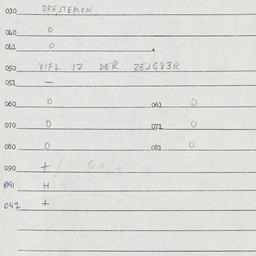 030 DREJTEMON
040 0
041 0
050 VIFL IZ DER ZEJG83R
051 —
060 0 061 0
070 0 071 0
080 0 081 0
090 +
091 H
042 +